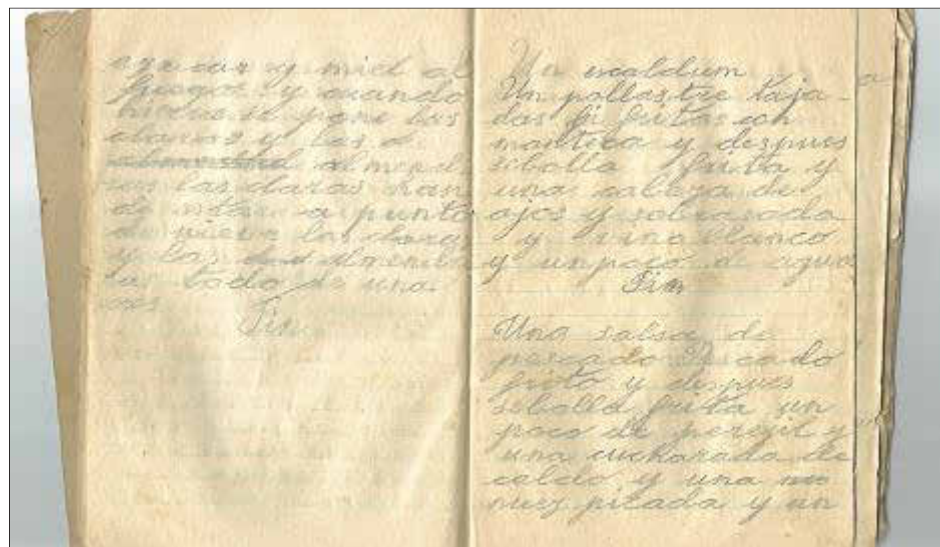 azucar y miel al
fuego y cuando
hierve se pone las
claras y las a
almendra almend
ras las claras han
de estar a punto
de nieve las claras
y las almendra
las todo es una
ves
Fin
Un escaldum
Un pollastre taja-
das fritas con
manteca y despues
sebolla frita y
una cabeza de
ajos y sobrasada
y vino blanco
y un poco de agua
Fin
Una salsa de
pescado Pescado
frito y despues
sebolla frita un
poco de perejil y
una cucharada de
caldo y una
nuez picada y un